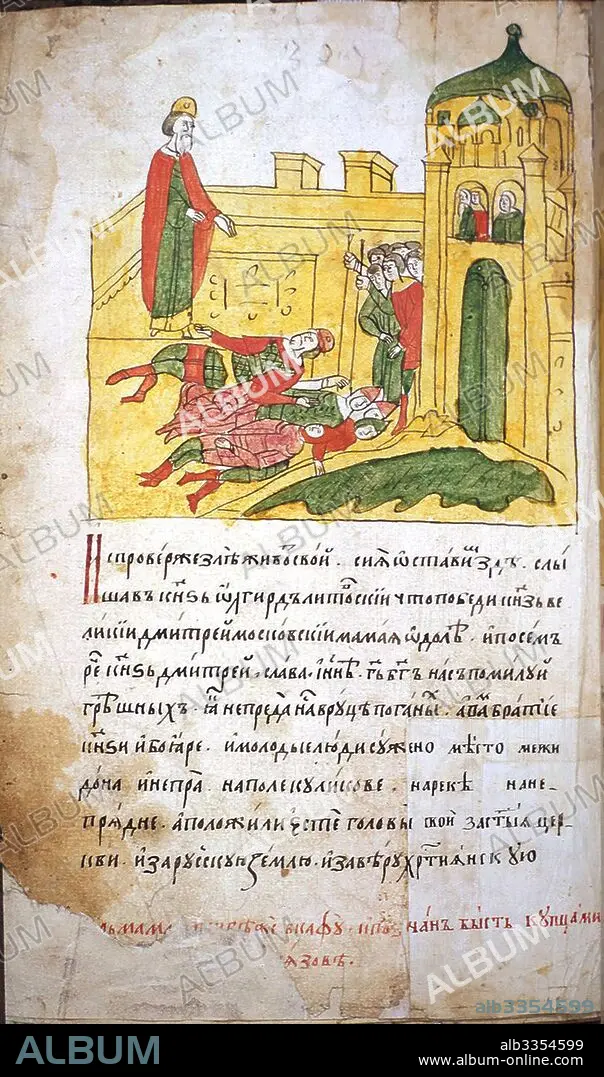 испроверже зле живо свой . сия ѿстави здѣ . слы
шавъ кн҃зь ѿлгирдъ литовскїи что победи кн҃зь ве
ликїи дмитреи московскїи мамая ѿдолѣ . и посемъ
рече кн҃зь дмитрей . слава . г҃ь бг҃ъ насъ помилуй
грѣшныхъ . не преда на в руце поганы . а ва братїе
кн҃зи и боѧре . и молодые люди сужено мѣсто межи
дона и непра . на поле куликове . на рекѣ на не-
прядне . а положили есте головы свои за стыѧ цер-
кви . и за русскую землю . и за вѣру хр҃тиянскую
в кафу . и бысть купцами
ALBUM
alb3354599
alb3354599
www.album-online.com